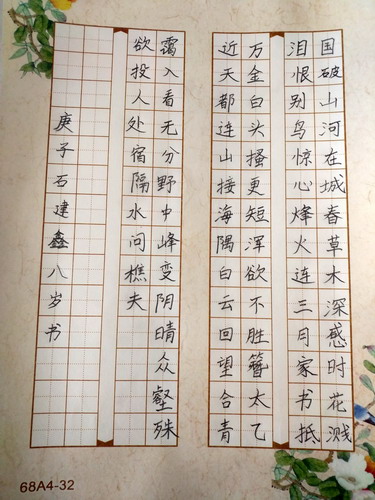 国破山河在城春草木深感时花溅
泪恨别鸟惊心烽火连三月家书抵
万金白头搔更短浑欲不胜簪太乙
近天都连山接海隅白云回望合青
霭入看无分野中峰变阴晴众壑殊
欲投人处宿隔水问樵夫
庚子石建鑫八岁书
68A4-32